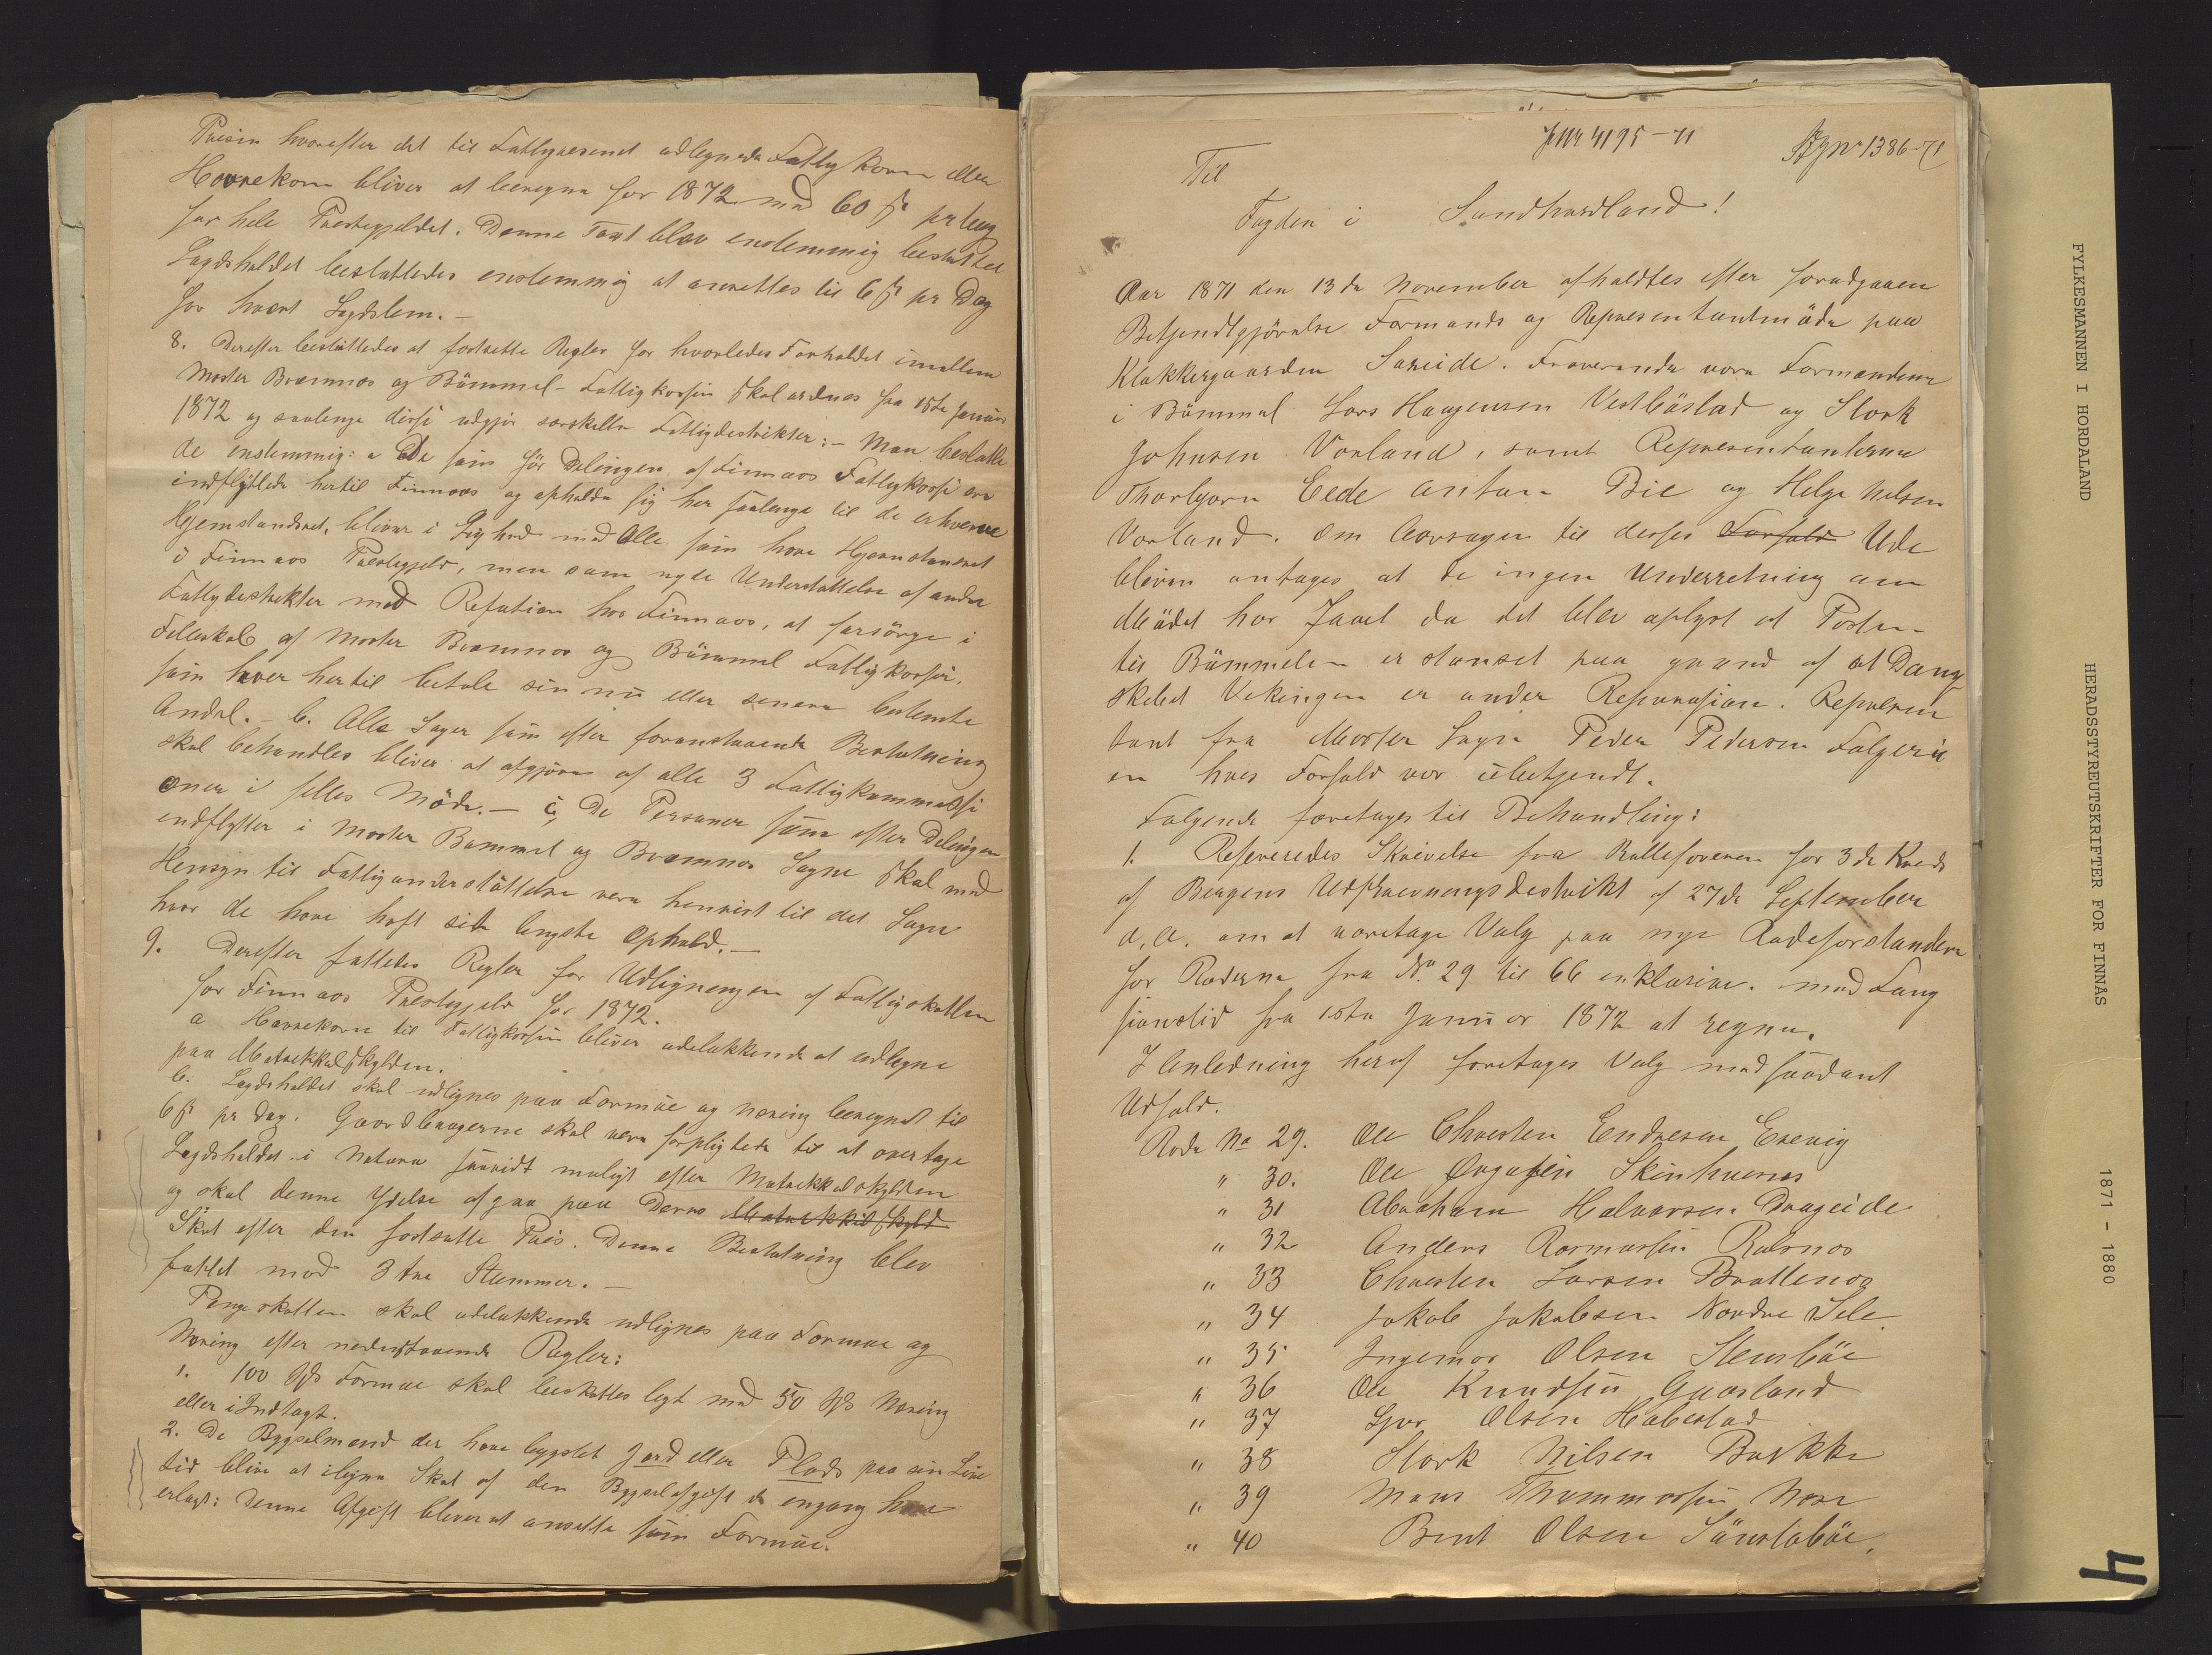 Prisen hvorefter det til Fattigvæsenet udlignede Fattig Korn eller
Havrekorn bliver at beregne for 1872 med 60 ß pr Vog
for hele Præstegjeldet. Denne Taxt blev enstemmig besluttet
Lægdsholdet besluttedes enstemmig at ansettes til 6 ß pr Dag
for hvert Lægdslem. –
8. Derefter besluttedes at fastsette Regler for hvorledes Forholdet imellem
Moster Bremnæs og Bömmel-Fattigkassen skal ordnes fra 1ste Januar
1872 og saalenge disse udgjør særskilte Fattigdistrikter: – Man beslutte
de enstemmig: a De som før Delingen af Finnaas Fattigkasse ere
indflyttede hertil Finnaas og opholde sig her saalenge til de erhverve
Hjemstandsret, bliver i Lighed med Alle som have Hjemstandsret
i Finnaas Præstegjeld, men som nyde Understøttelse af andre
Fattigdistrikter med Refution hos Finnaas, at forsørge i
Felleskab af Moster Bremnæs og Bömmel Fattigkasser,
som hver hertil betale sin nu eller senere bestemte
Andel. – b. Alle Sager som efter foranstaaende Beslutning
skal behandles bliver at afgjøre af alle 3 Fattigkommissi
oner i felles Möde. – c, De Personer som efter Delingen
indflytter i Moster Bømmel og Bremnes Sogne skal med
Hensyn til Fattigunderstøttelse være henvist til det Sogn
hvor de have haft sit lengste Ophold. –
9. Derefter fattedes Regler for Udligningen af Fattigskatten
for Finnaas Præstegjeld for 1872.
a Havrekorn til Fattigkassen bliver udelukkende at udligne
paa Matrikkulskylden.
b. Lægdsholdet skal udlignes paa Formue og Næring beregnet til
6 ß pr Dag. Gaardbrugerne skal være forpligtede til at overtage
Lægdsholdet i Natura saavidt muligt efter Matrikkulskylden
og skal denne Ydelse afgaa paa deres Matrikkelskyld
Skat efter den fastsatte Pris. Denne Beslutning blev
fattet mod 3 tre Stemmer. –
Pengeskatten skal udelukkende udlignes paa Formue og
Næring efter nedenstaaende Regler:
1. 100 Spd Formue skal beskattes ligt med 50 Spd Næring
eller i Indtægt.
2. De Bygselmænd der have bygslet Jord eller Plads paa sin Live
tid blive at iligne Skat af den Bygselafgift de engang have
erlagt: Denne Afgift bliver at ansette som Formue.
J No 4195–71
No 1386–71
Til
Fogden i Søndhordland!
Aar 1871 den 13de November afholdtes efter forudgaaen
Bekjendtgjörelse Formands og Representantmöde paa
Klokkergaarden Sareide. Fraverende vare Formændene
i Bömmel Lars Haagensen Vestbøstad og Stork
Johnsen Vorland, samt Representanterne
Thorbjørn Eede Anton Bie og Helge Nilsen
Vorland. Om Aarsagen til deres Forfald Ude
bliven antages at de ingen Underretning om
Mödet har faaet da det blev oplyst at Posten
til Bömmelen er stanset paa grund af at Damp
skibet Vikingen er under Reparasion. Represen
tant fra Moster Sogn Peder Pedersen Folgerø
en hvis Forfald var übekjendt.
Følgende foretages til Behandling:
1. Refereredes Skrivelse fra Rulleføreren for 3de Kreds
af Bergens Udskrivningsdistrikt af 27de September
d. A. om at foretage Valg paa nye Rodeforstandere
for Roderne fra No. 29 til 66 inklusive. med Fung
sionstid fra 1ste Januar 1872 at regne.
I Anledning heraf foretages Valg med saadant
Udfald.
Rode No 29. Ole Christen Endresen Enevig
" 30. Ole Skinhuenæs
" 31 Abraham Halvorsen Drageide
" 32 Anders Rasmussen Kulenæs
" 33 Christen Larsen Brattenæs
" 34 Jakob Jakobsen Nordre Sele
" 35 Ingemor Olsen Stensbøe
" 36 Ole Knudsen Gaasland
" 37 Olsen Habestad
" 38 Stork Nilsen Bække
" 39 Mons Thommassen Nese
" 40 Bent Olsen Sönstabøe.
FYLKESMANNEN I HORDALAND
HERADSSTYREUTSKRIFTER FOR FINNÅS
1871 - 1880
4